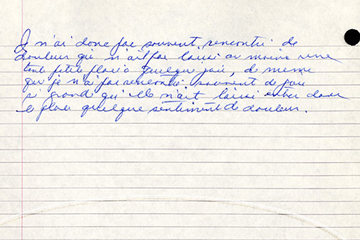 Je n'ai donc pas souvent rencontré de
douleur qui n'ait pas laissé au moins une
toute petite place à quelque joie, de même
que je n'ai pas rencontré souvent de joie
si grand qu'elle n'ait laissé entrer dans
la place quelque sentiment de douleur.